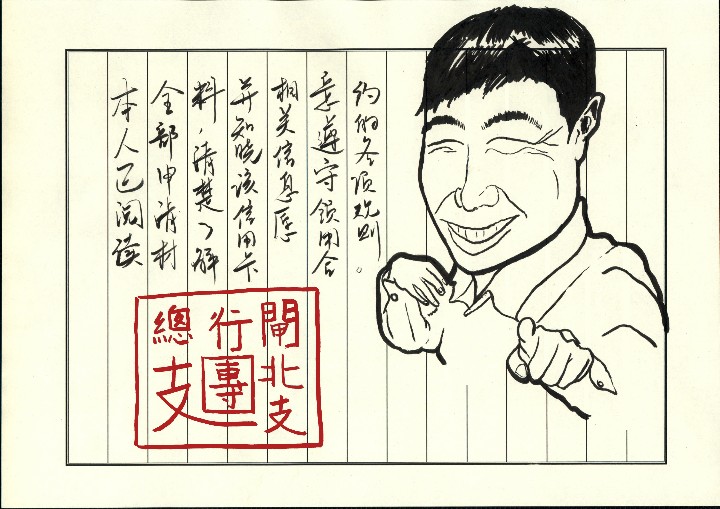 本人已阅读
全部申请材
料，清楚了解
并知晓该信用卡
相关信息愿
意遵守领用合
约的各项规则。
閘北支
行團
總支